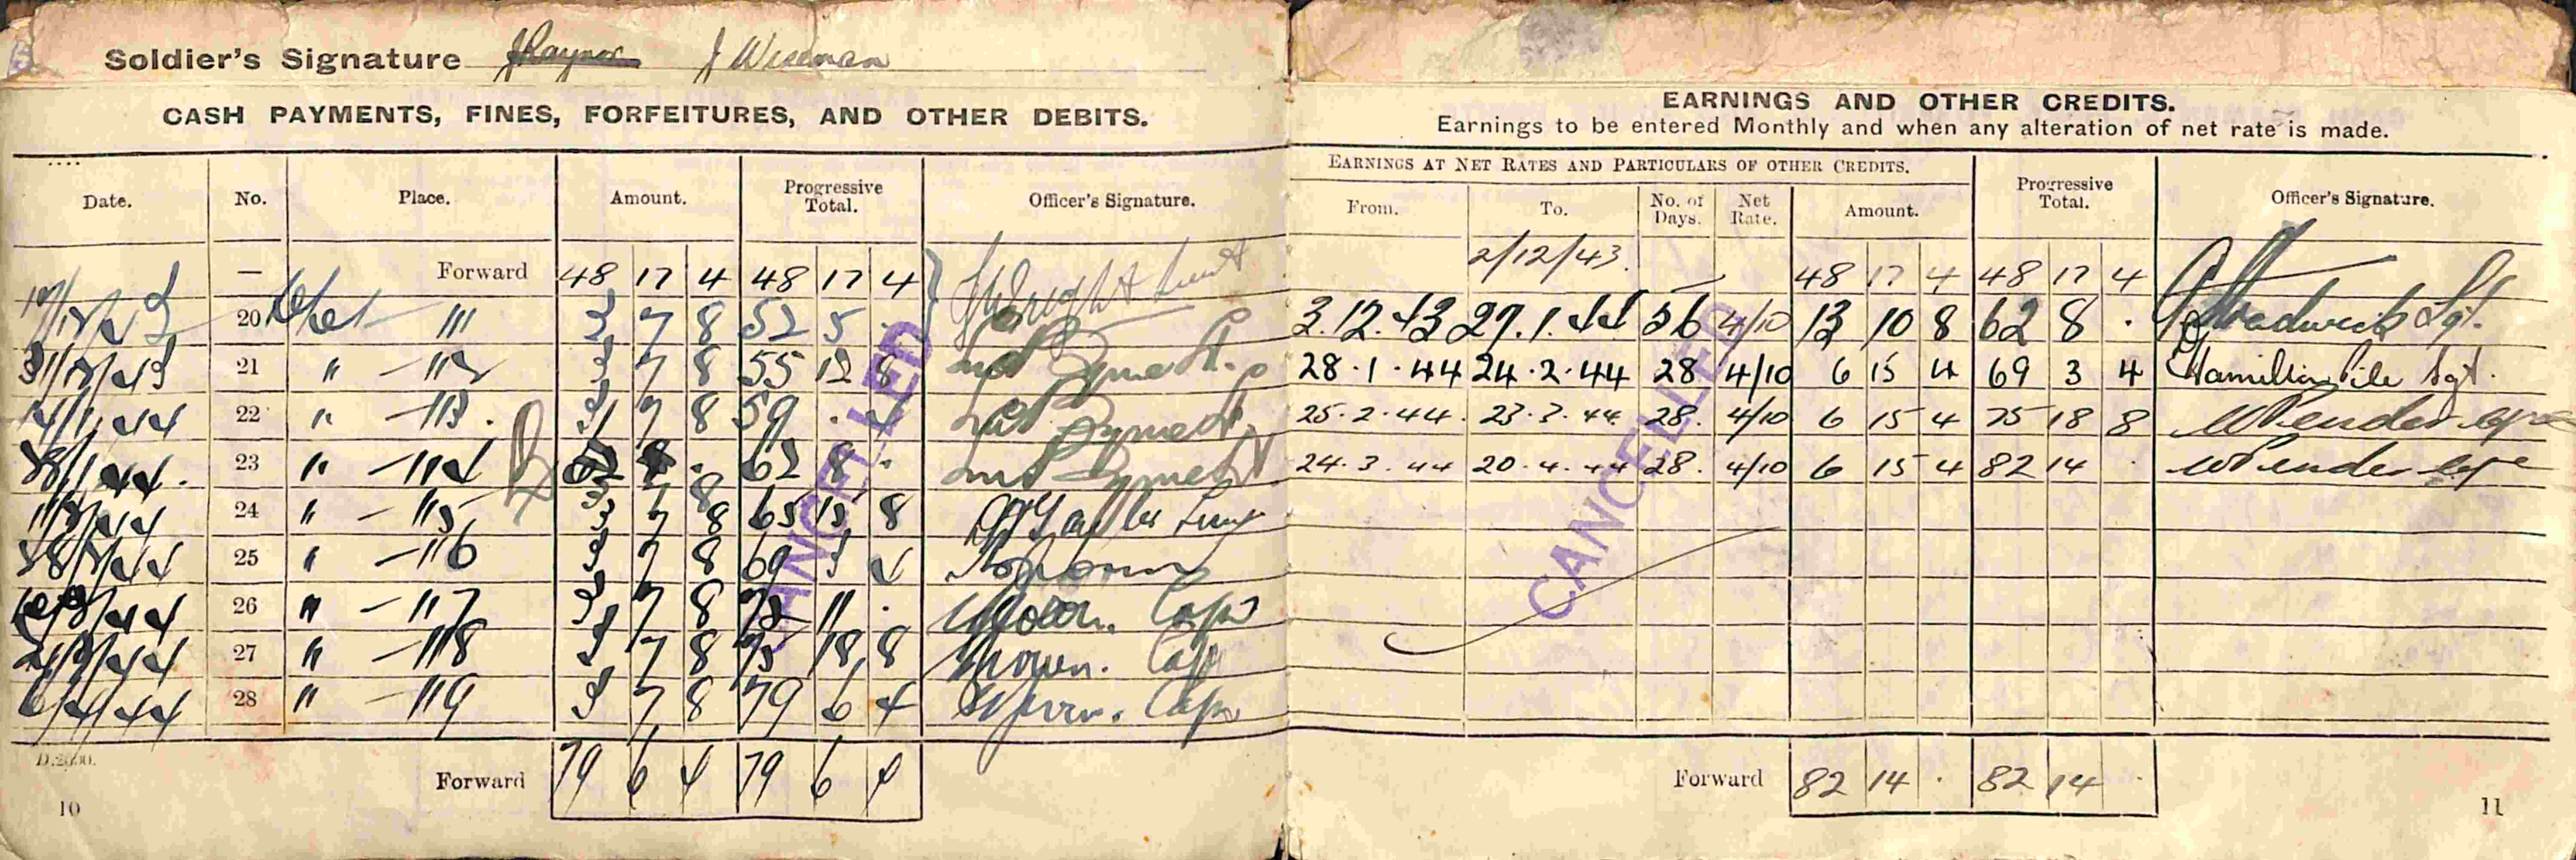 Soldier's Signature J Raynor J Wiseman
CASH PAYMENTS, FINES, FORFEITURES, AND OTHER DEBITS.
Date. No. Place. Amount. Progressive Total. Officer's Signature.
— Forward 48 17 4 48 17 4
20 111 3 7 8 52 5 .
31/12/43 21 " 112 3 7 8 55 12 8
14/1/44 22 " 113. 3 7 8 59 . 4
28/1/44. 23 " 114 62 8 .
24 " 115 3 7 8 65 15 8
25 " 116 3 7 8 69 3 4
26 " 117 3 7 8 72 11 .
27 " 118 3 7 8 75 18 8 Capt
28 " 119 3 7 8 79 6 4 Capt
CANCELLED
Forward 79 6 4 79 6 4
D.2600.
10
EARNINGS AND OTHER CREDITS.
Earnings to be entered Monthly and when any alteration of net rate is made.
EARNINGS AT NET RATES AND PARTICULARS OF OTHER CREDITS.
From. To. No. of Days. Net Rate. Amount. Progressive Total. Officer's Signature.
2/12/43. 48 17 4 48 17 4
3.12.43 27.1.44 56 4/10 13 10 8 62 8 . Sgt.
28.1.44 24.2.44 28 4/10 6 15 4 69 3 4 Hamilton Pile Sgt.
25.2.44. 23.3.44. 28. 4/10 6 15 4 75 18 8 W Pender
24.3.44 20.4.44 28. 4/10 6 15 4 82 14 . W Pender
CANCELLED
Forward 82 14 . 82 14 .
11